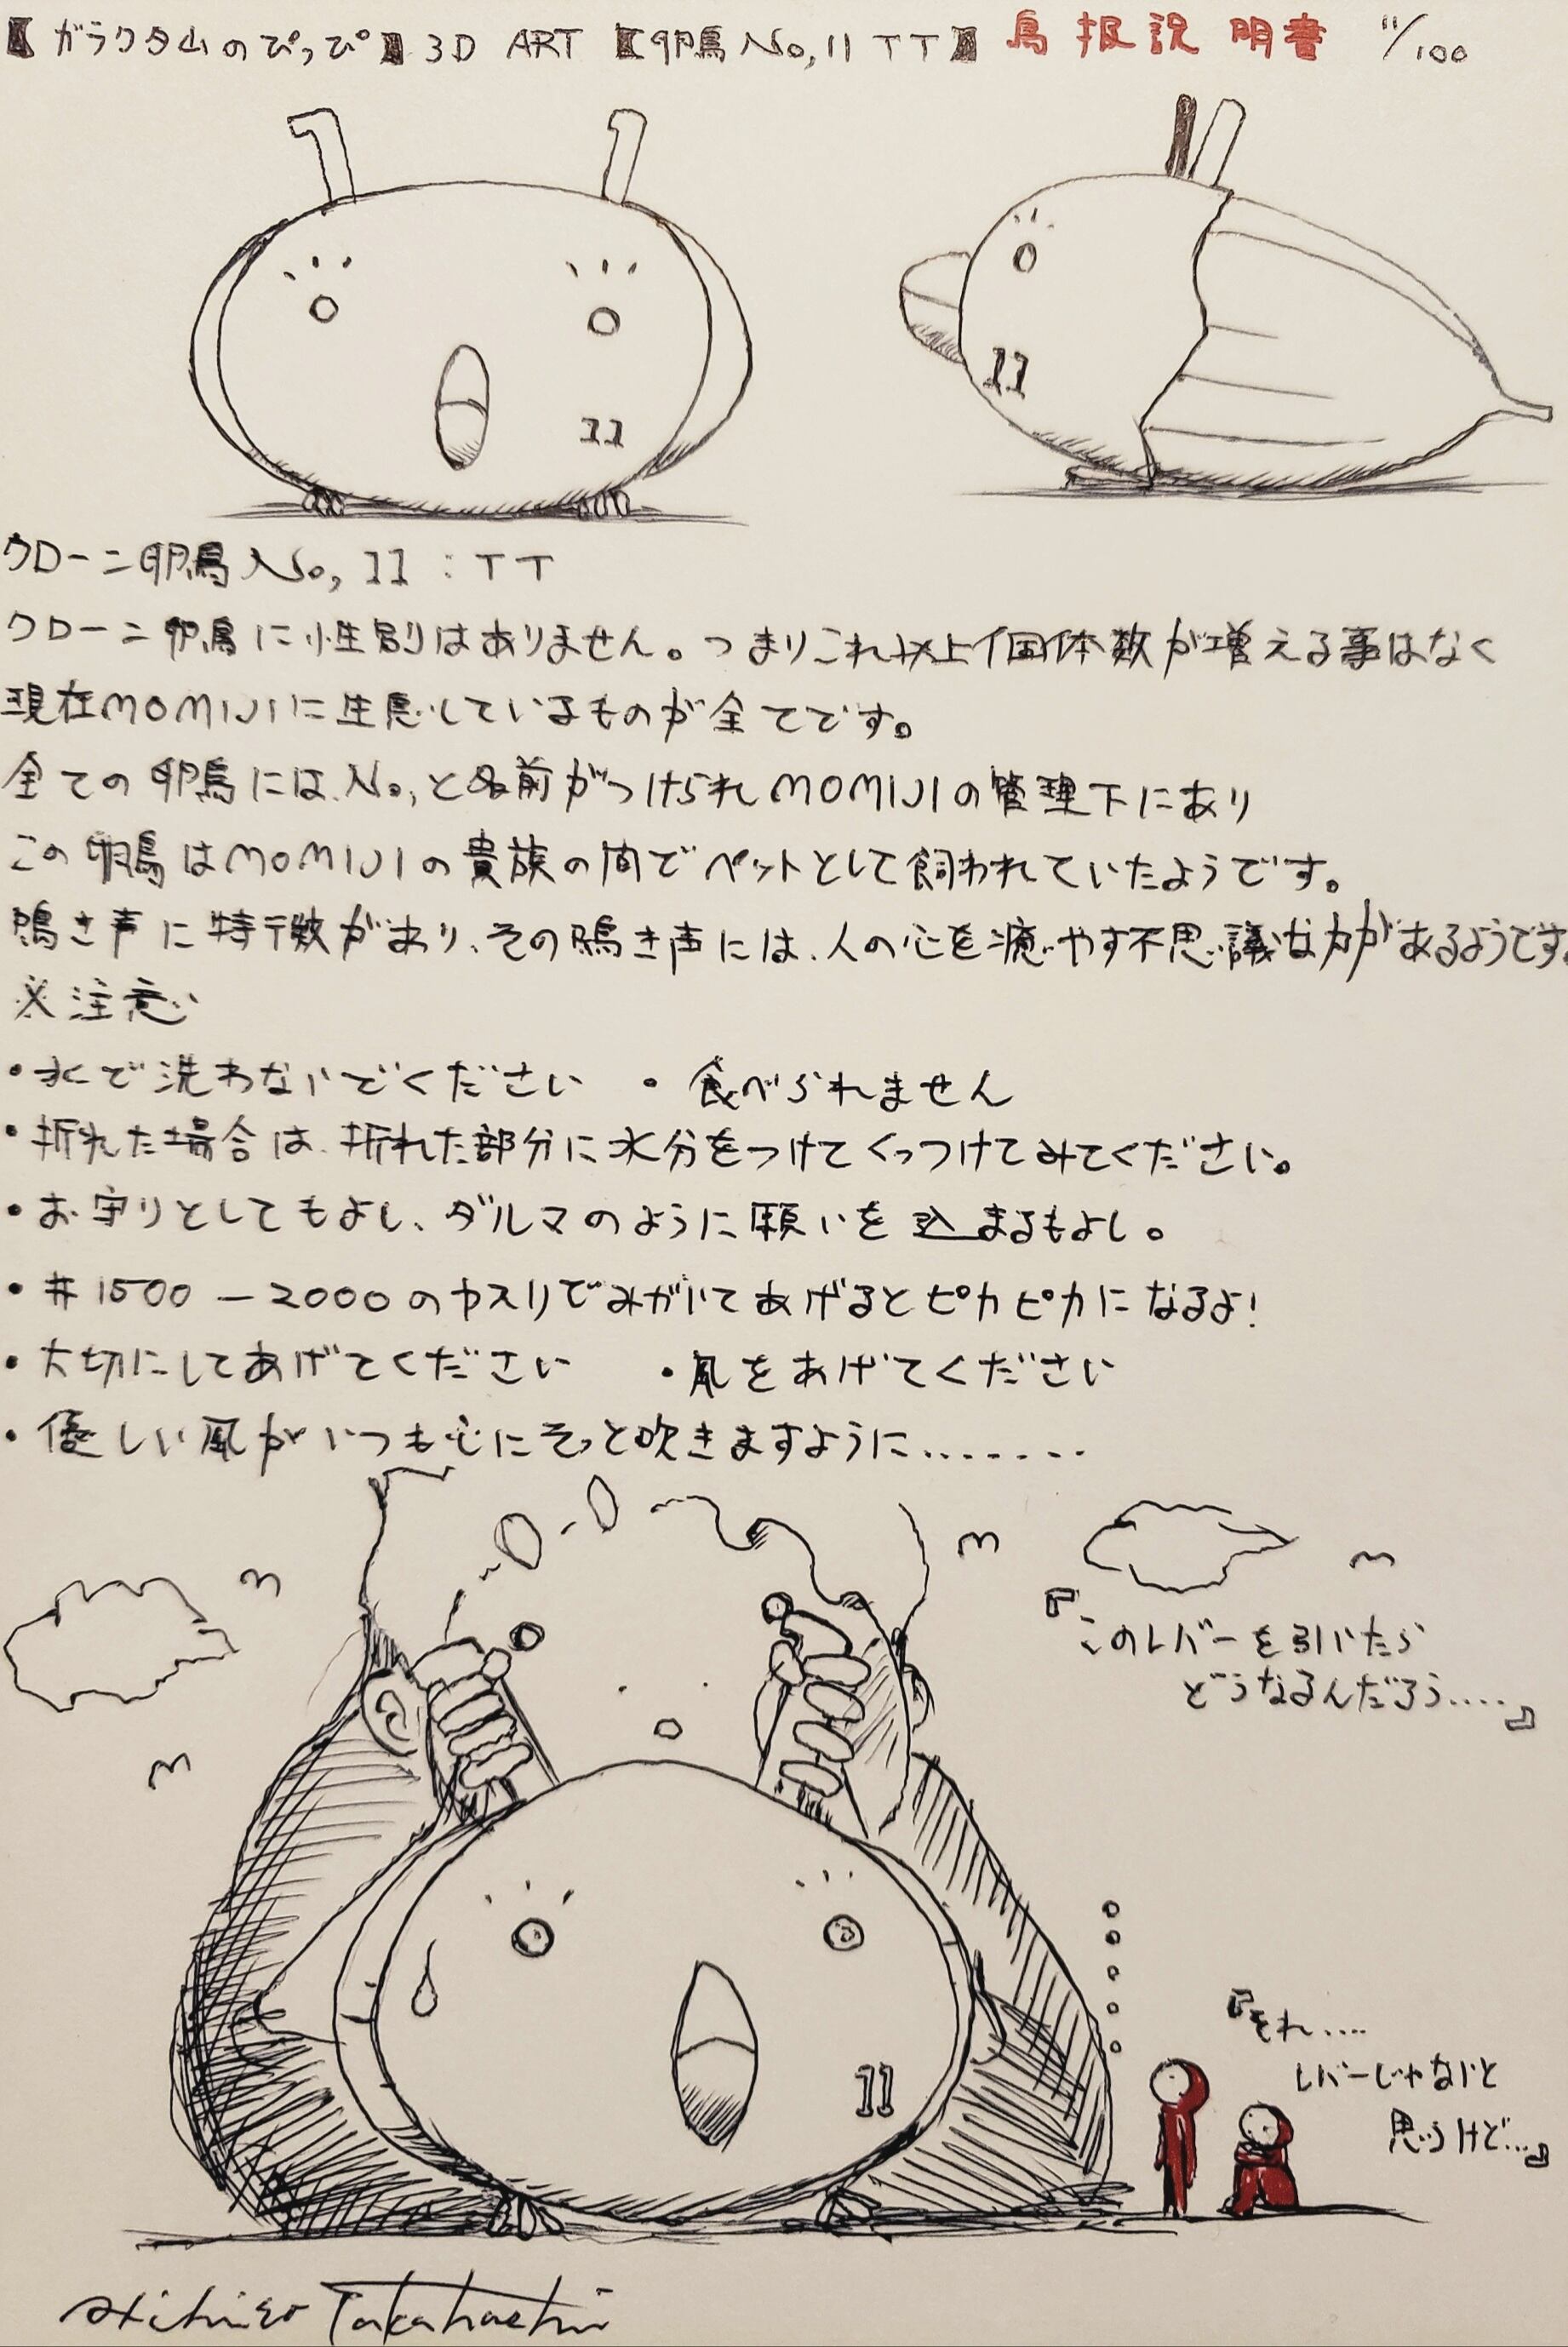 【ガラクタ山のぴっぴ】3D ART【卵鳥No,11 TT】鳥扱説明書 11/100
11
11
クローン卵鳥No,11:TT
クローン卵鳥に性別はありません。つまりこれ以上個体数が増える事はなく
現在MOMIJIに生息しているものが全てです。
全ての卵鳥にはNo,と名前がつけられMOMIJIの管理下にあり
この卵鳥はMOMIJIの貴族の間でペットとして飼われていたようです。
鳴き声に特徴があり、その鳴き声には、人の心を癒やす不思議な力があるようです。
※注意
・水で洗わないでください ・食べられません
・折れた場合は、折れた部分に水分をつけてくっつけてみてください。
・お守りとしてもよし、ダルマのように願いを込まるもよし。
・#1500-2000のヤスリでみがいてあげるとピカピカになるよ!
・大切にしてあげてください ・風をあげてください
・優しい風がいつも心にそっと吹きますように........
『このレバーを引いたら
どうなるんだろう....』
『それ....
レバーじゃないと
思うけど...』
11
Takahashi